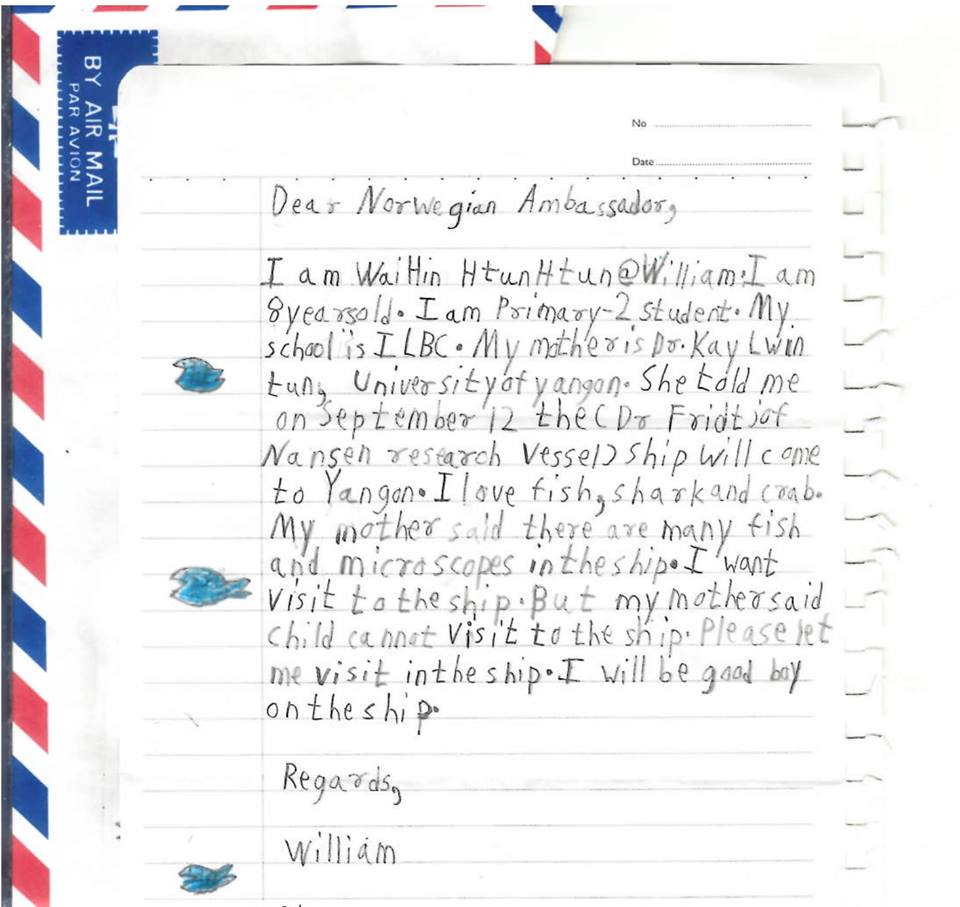 BY AIR MAIL
PAR AVION
No
Date
Dear Norwegian Ambassador,
I am Wai Hin Htun Htun@William. I am
8 years old. I am Primary-2 student. My
school is ILBC. My mother is Dr. Kay Lwin
tun, University of yangon. She told me
on September 12 the (Dr Fridtjof
Nansen research Vessel) ship will come
to Yangon. I love fish, shark and crab.
My mother said there are many fish
and microscopes in the ship. I want
visit to the ship. But my mother said
child cannot visit to the ship. Please let
me visit in the ship. I will be good boy
on the ship.
Regards,
William